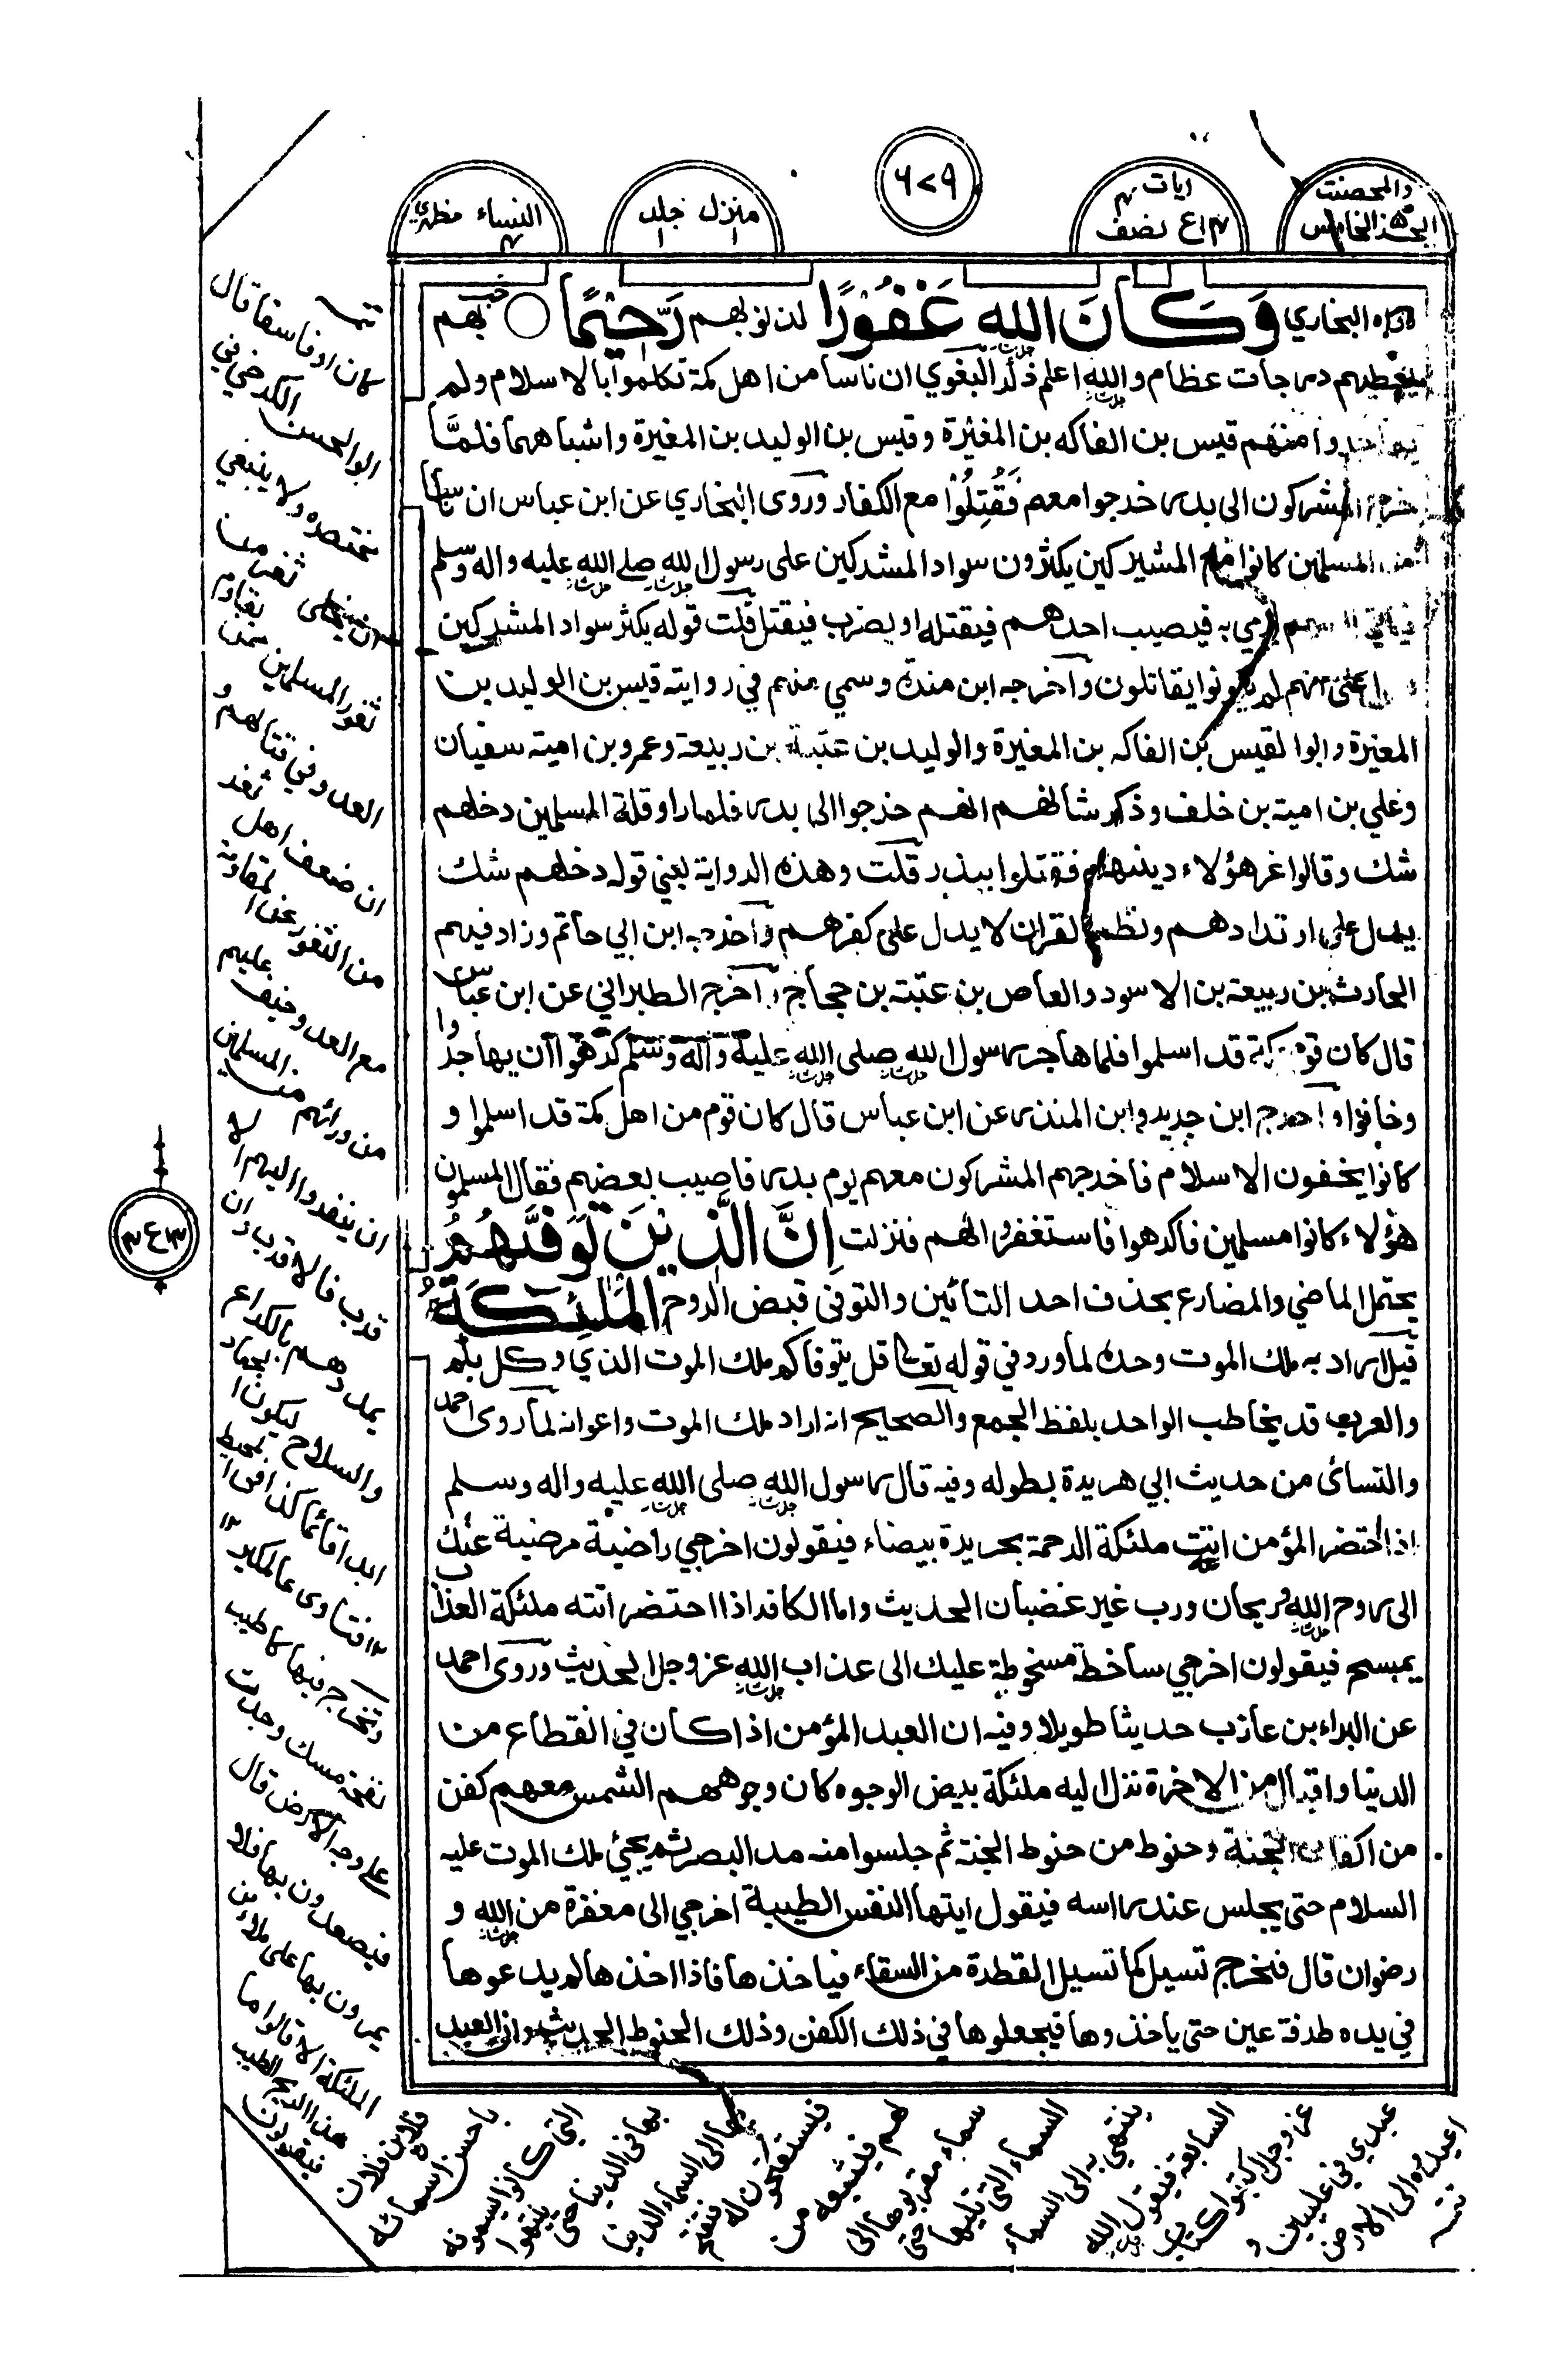 والمحصنت
الجزء الخامس
ايات
نصف
٦٧٩
منزل جلد
١ ١
النساء مظهري
٤
رواه البخاري وَكَانَ اللهُ غَفُوْرًا لذنوبهم رَّحِيْمًا ○ بهم
يعطيهم درجات عظام والله اعلم ذكر البغوي ان ناسا من اهل مكة تكلموا بالاسلام ولم
يهاجروا منهم قيس بن الفاكه بن المغيرة وقيس بن الوليد بن المغيرة واشباههما فلمّا
خرج المشركون الى بدر خرجوا معهم فَقُتِلُوْا مع الكفار وروى البخاري عن ابن عباس ان ناسا
من المسلمين كانوا مع المشركين يكثرون سواد المشركين على رسول الله صلى الله عليه واله وسلم
فياتي السهم يرمي به فيصيب احدهم فيقتله او يضرب فيقتل قلت قوله يكثر سواد المشركين
يعني انهم لم يكونوا يقاتلون واخرجه ابن مندة وسمي منهم في روايته قيس بن الوليد بن
المغيرة وابوا لقيس بن الفاكه بن المغيرة والوليد بن عتبة بن ربيعة وعمرو بن امية سفيان
وعلي بن امية بن خلف وذكر شانهم انهم خرجوا الى بدر فلما راوا قلة المسلمين دخلهم
شك وقالوا غر هؤلاء دينهم فقتلوا ببدر قلت وهذه الرواية يعني قوله دخلهم شك
يدل على ارتدادهم ونظم القران لا يدل على كفرهم واخرجه ابن ابي حاتم وزاد فيهم
الحارث بن ربيعة بن الاسود والعاص بن عتبة بن حجاج واخرج الطبراني عن ابن عباس
قال كان قوم بمكة قد اسلموا فلما هاجر رسول الله صلى الله عليه واله وسلم كرهوا ان يهاجروا
وخافوا واخرج ابن جرير وابن المنذر عن ابن عباس قال كان قوم من اهل مكة قد اسلموا و
كانوا يخفون الاسلام فاخرجهم المشركون معهم يوم بدر فاصيب بعضهم فقال المسلمون
هؤلاء كانوا مسلمين فاكرهوا فاستغفروا لهم فنزلت اِنَّ الَّذِيْنَ تَوَفّٰىهُمُ
يحتمل الماضي والمضارع بحذف احد التائين والتوفى قبض الروح الْمَلٰٓئِكَةُ
قيل اراد به ملك الموت وحده لما ورد في قوله تعالى قل يتوفاكم ملك الموت الذي وكل بكم
والعرب قد يخاطب الواحد بلفظ الجمع والصحيح انه اراد ملك الموت واعوانه لما روى احمد
والنسائى من حديث ابي هريرة بطوله وفيه قال رسول الله صلى الله عليه واله وسلم
اذا احتضر المؤمن اتت ملئكة الرحمة بحريرة بيضاء فيقولون اخرجي راضية مرضية عنك
الى روح الله وريحان ورب غير غضبان الحديث واما الكافر اذا احتضر اتته ملئكة العذاب
بمسح فيقولون اخرجي ساخطة مسخوطة عليك الى عذاب الله عزوجل الحديث وروى احمد
عن البراء بن عازب حديثا طويلا وفيه ان العبد المؤمن اذا كان في انقطاع من
الدنيا واقبال من الاخرة نزل اليه ملئكة بيض الوجوه كان وجوههم الشمس معهم كفن
من اكفان الجنة وحنوط من حنوط الجنة ثم جلسوا منه مد البصر ثم يجئ ملك الموت عليه
السلام حتى يجلس عند راسه فيقول ايتها النفس الطيبة اخرجي الى مغفرة من الله و
رضوان قال فتخرج تسيل كما تسيل القطرة من السقاء فياخذها فاذا اخذها لم يدعوها
في يده طرفة عين حتى ياخذوها فيجعلوها في ذلك الكفن وذلك الحنوط الحديث وان العبد
كان او فاسقا قال
الكرخي في
ابو الحسن
مختصره ولا ينبغي
ان يخلى ثغر من
ثغور المسلمين ممن يقاوم
العدو في قتالهم و
ان ضعف اهل ثغر
من الثغور عن المقاومة
مع العدو وخيف عليهم
من ورائهم من المسلمين
ان ينفروا اليهم الا
قرب فالاقرب وان
يمدوهم بالكراع
والسلاح ليكون الجهاد
ابدا قائما كذا في المحيط
١٢ فتاوى عالمكير ١٢
وتخرج منها كاطيب
نفحة مسك وجدت
على وجه الارض قال
فيصعدون بها فلا
يمرون بها على ملا من
الملئكة الا قالوا ما
هذا الريح الطيب
فيقولون
فلان بن فلان
باحسن اسمائه
التي كانوا يسمونه
بها في الدنيا حتى ينتهوا
بها الى السماء الدنيا
فيستفتحون له فيفتح
لهم فيشيعه من
سماء مقربوها الى
السماء التي تليها حتى
ينتهي به الى السماء
السابعة فيقول الله
عزوجل اكتبوا كتاب
عبدي في عليين و
اعيدوه الى الارض